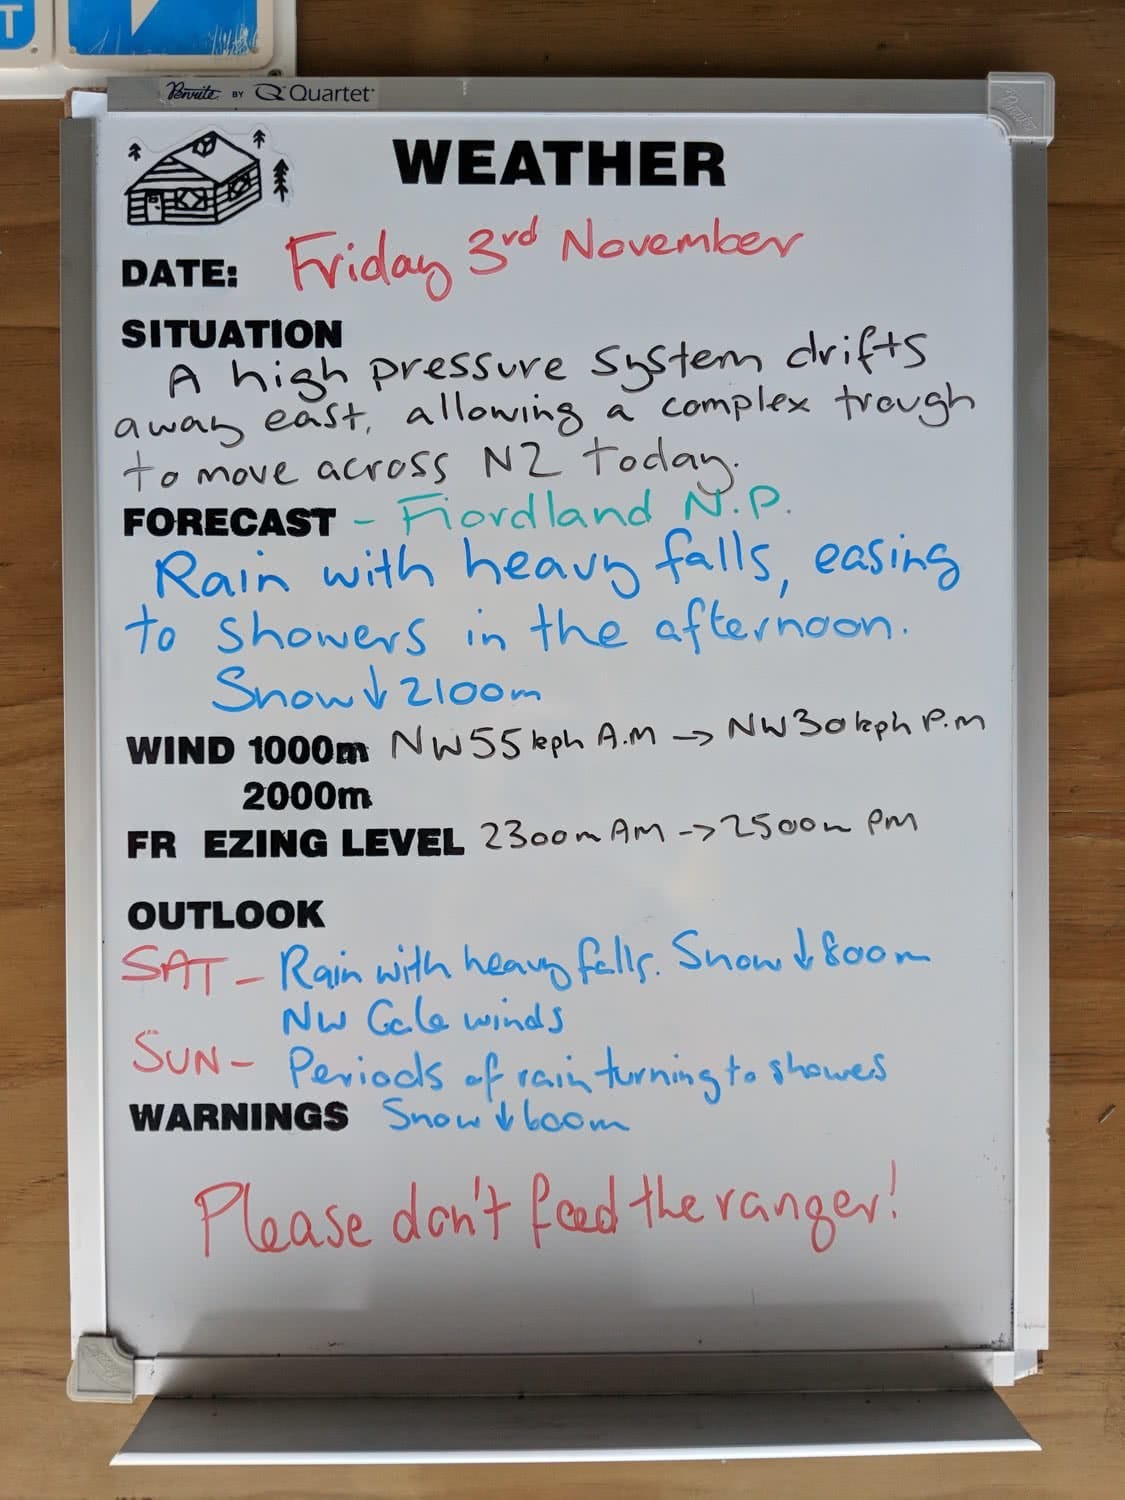 T
Penrite BY Quartet
WEATHER
DATE: Friday 3rd November
SITUATION
A high pressure system drifts
away east, allowing a complex trough
to move across NZ today.
FORECAST - Fiordland N.P.
Rain with heavy falls, easing
to showers in the afternoon.
Snow ↓ 2100m
WIND 1000m NW 55 kph A.M → NW 30 kph P.M
2000m
FR EZING LEVEL 2300m AM → 2500m PM
OUTLOOK
SAT - Rain with heavy falls. Snow ↓ 800m
NW Gale winds
SUN - Periods of rain turning to showes
WARNINGS Snow ↓ 600m
Please don't feed the ranger!